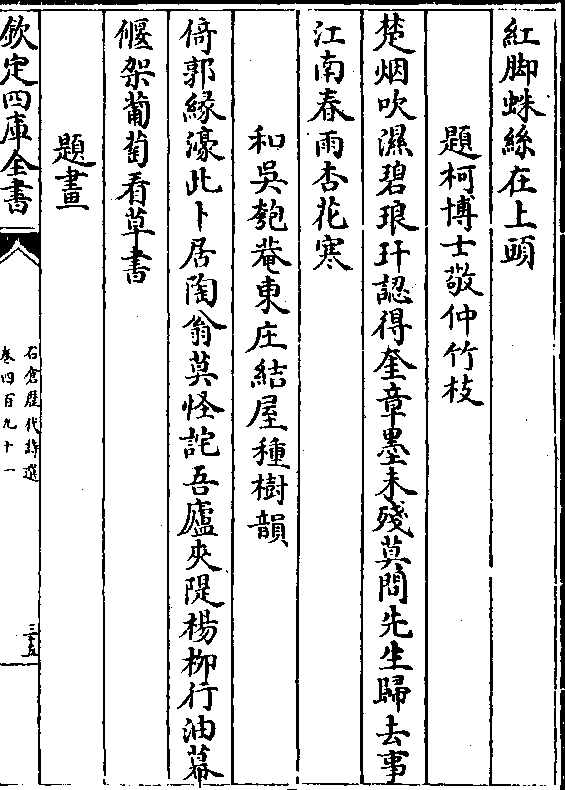 紅脚蛛絲在上頭
題柯博士敬仲竹枝
楚烟吹濕碧琅玕認得奎章墨未殘莫問先生歸去事
江南春雨杏花寒
和吳匏菴東庄結屋種樹韻
倚郭緣濠此卜居陶翁莫怪詫吾廬夾隄楊柳行油幕
偃架葡萄看草書
題畫
欽定四庫全書
石倉歷代詩選
卷四百九十一
三五